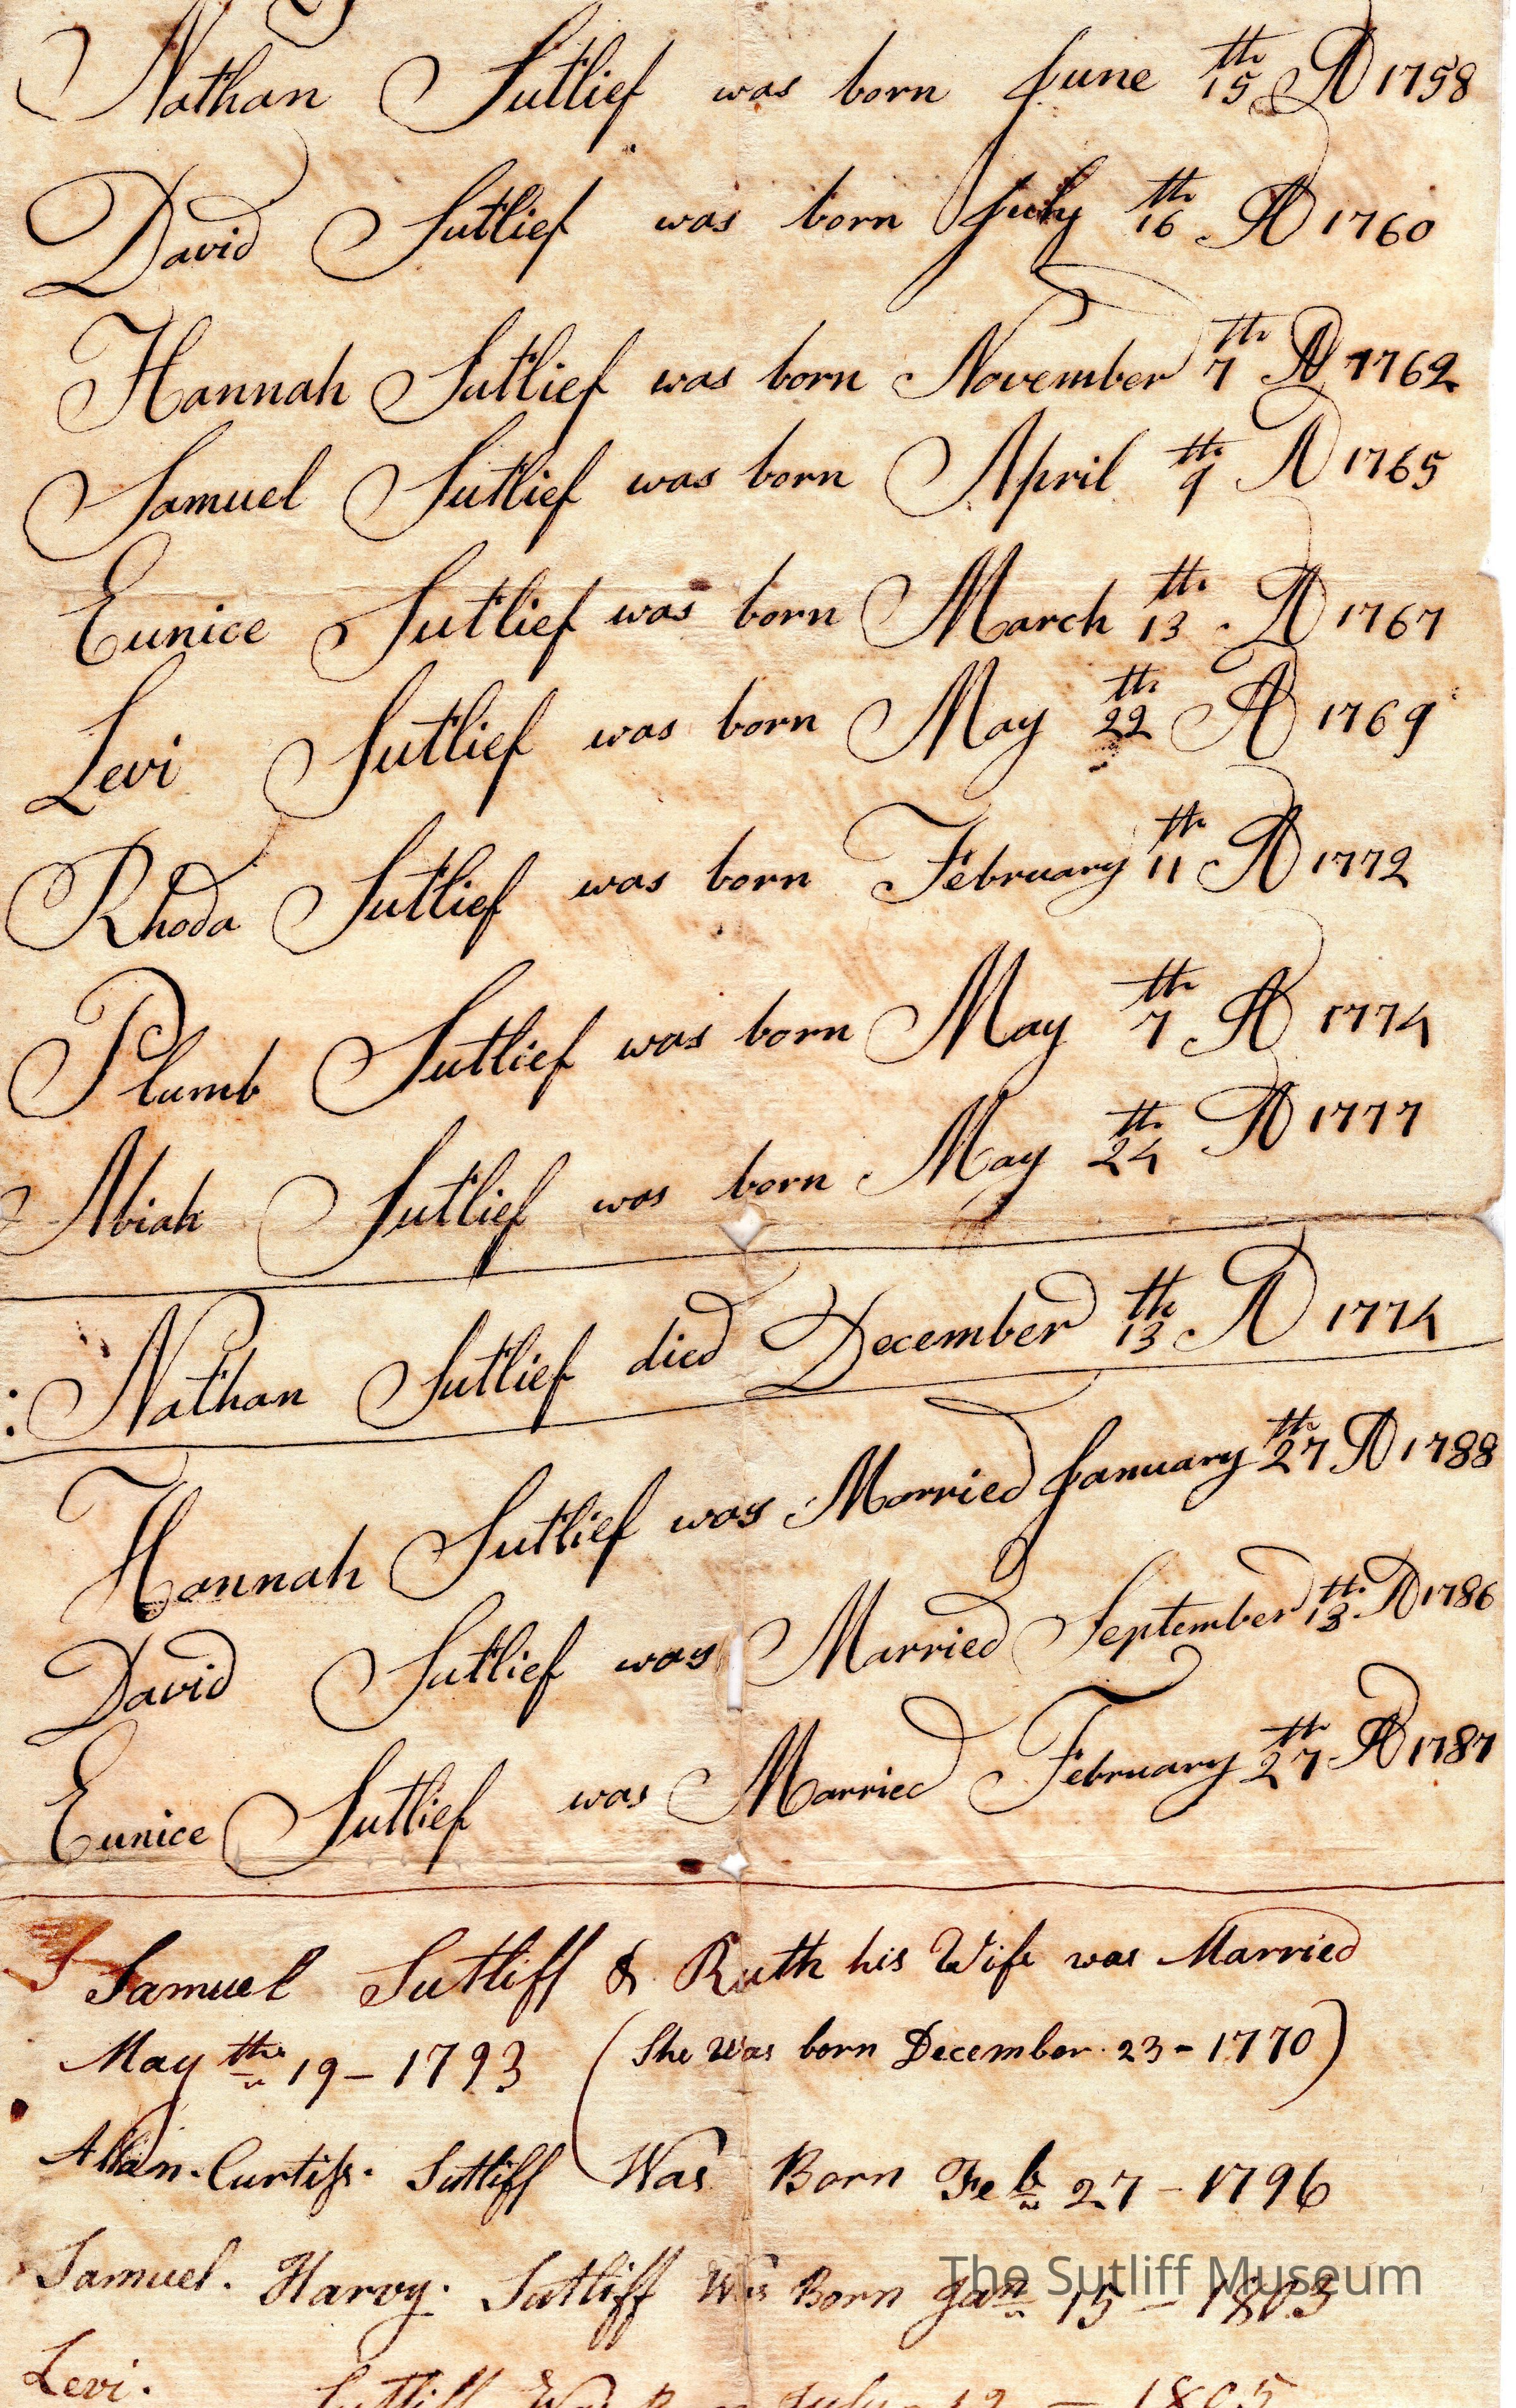 Nathan Sutlief was born June 15th AD 1758
David Sutlief was born July 16th AD 1760
Hannah Sutlief was born November 7th AD 1762
Samuel Sutlief was born April 9th AD 1765
Eunice Sutlief was born March 13th AD 1767
Levi Sutlief was born May 22th AD 1769
Rhoda Sutlief was born February 11th AD 1772
Plumb Sutlief was born May 7th AD 1774
Abiah Sutlief was born May 24th AD 1777
: Nathan Sutlief died December 13th AD 1774
Hannah Sutlief was Married January 27th AD 1788
David Sutlief was Married September 13th AD 1786
Eunice Sutlief was Married February 27th AD 1787
Samuel Sutliff & Ruth his Wife was Married
May th 19 - 1793 (She was born December 23 - 1770)
Allan. Curtiss. Sutliff Was Born Feb 27 - 1796
Samuel. Harvy. Sutliff Was Born Jan 15 - 1803
The Sutliff Museum
Levi. Sutliff Was Born July 12 - 1805